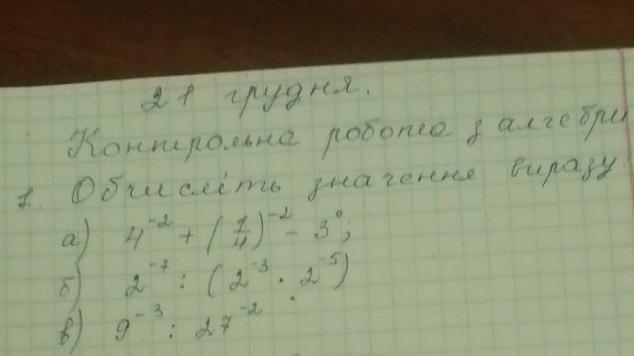 21 грудня.
Контрольна робота з алгебри
1. Обчисліть значення виразу:
а) 4⁻² + (1/4)⁻² - 3⁰;
б) 2⁻⁷ : (2⁻³ · 2⁻⁵)
в) 9⁻³ : 27⁻²